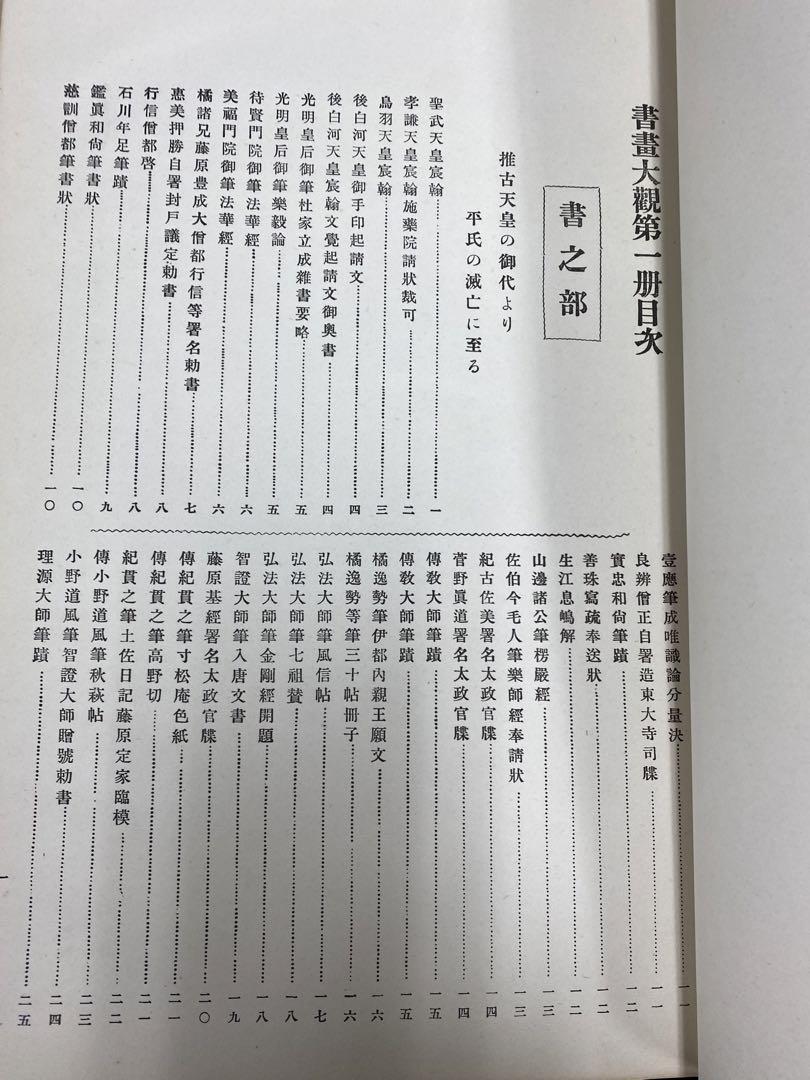 書畫大觀第一册目次
書之部
推古天皇の御代より
平氏の滅亡に至る
聖武天皇宸翰……一
孝謙天皇宸翰施藥院請狀裁可……二
鳥羽天皇宸翰……三
後白河天皇御手印起請文……四
後白河天皇宸翰文覺起請文御奧書……四
光明皇后御筆杜家立成雜書要略……五
光明皇后御筆樂毅論……五
待賢門院御筆法華經……六
美福門院御筆法華經……六
橘諸兄藤原豐成大僧都行信等署名勅書……七
惠美押勝自署封戸議定勅書……八
行信僧都啓……八
石川年足筆蹟……九
鑑眞和尙筆書狀……一〇
慈訓僧都筆書狀……一〇
壹應筆成唯識論分量決……一一
良辨僧正自署造東大寺司牒……一一
實忠和尙筆蹟……一二
善珠寫疏奉送狀……一二
生江息嶋解……一二
山邊諸公筆楞嚴經……一三
佐伯今毛人筆藥師經奉請狀……一三
紀古佐美署名太政官牒……一四
菅野眞道署名太政官牒……一四
傳敎大師筆蹟……一五
傳敎大師筆蹟……一五
橘逸勢筆伊都內親王願文……一六
橘逸勢等筆三十帖册子……一六
弘法大師筆風信帖……一七
弘法大師筆七祖贊……一八
弘法大師筆金剛經開題……一八
智證大師筆入唐文書……一九
藤原基經署名太政官牒……二〇
傳紀貫之筆寸松庵色紙……二一
傳紀貫之筆高野切……二一
紀貫之筆土佐日記藤原定家臨模……二二
傳小野道風筆秋萩帖……二三
小野道風筆智證大師贈號勅書……二四
理源大師筆蹟……二五
一